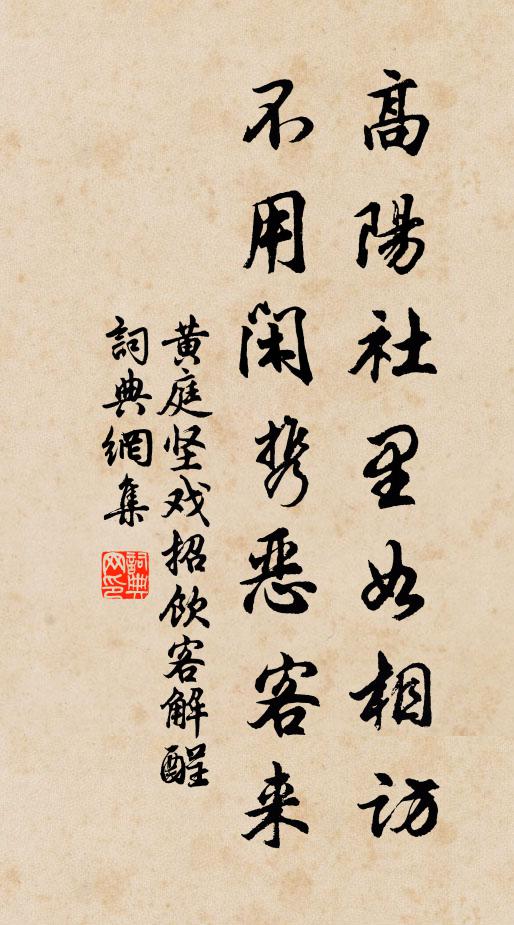 高陽社里如相訪
不用闲携恶客来
黄庭坚戏招飲客解醒
詞典網集
詞典網印